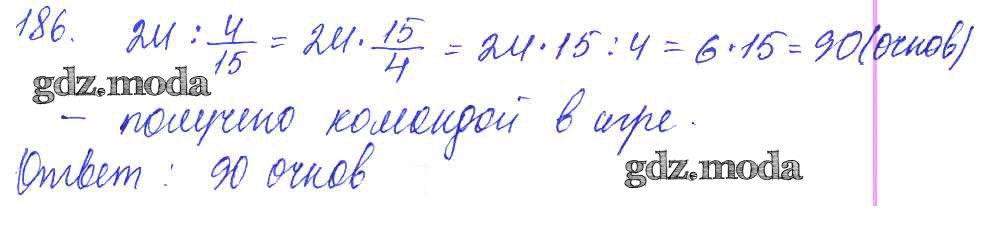 186. 24 : 4/15 = 24 · 15/4 = 24 · 15 : 4 = 6 · 15 = 90 (очков)
gdz.moda
– получено командой в игре.
Ответ : 90 очков
gdz.moda